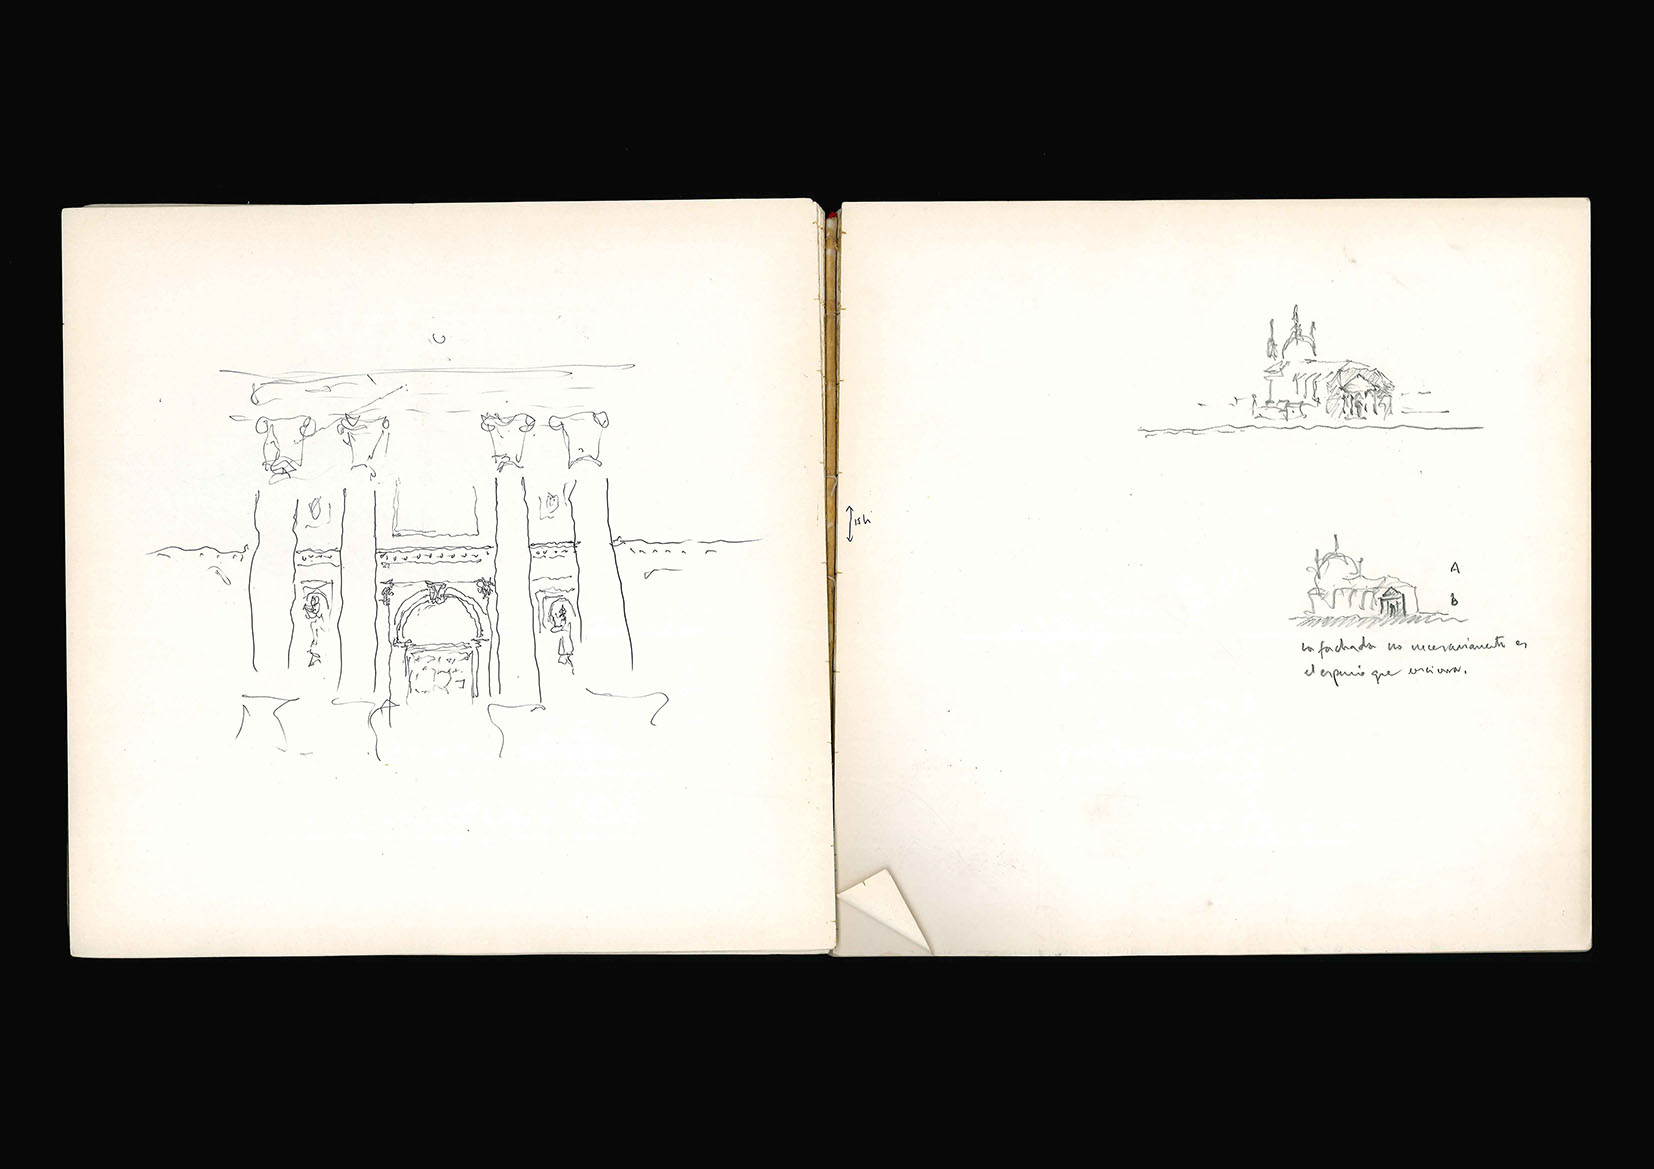 15h
A
B
la fachada no necesariamente es
el espacio que